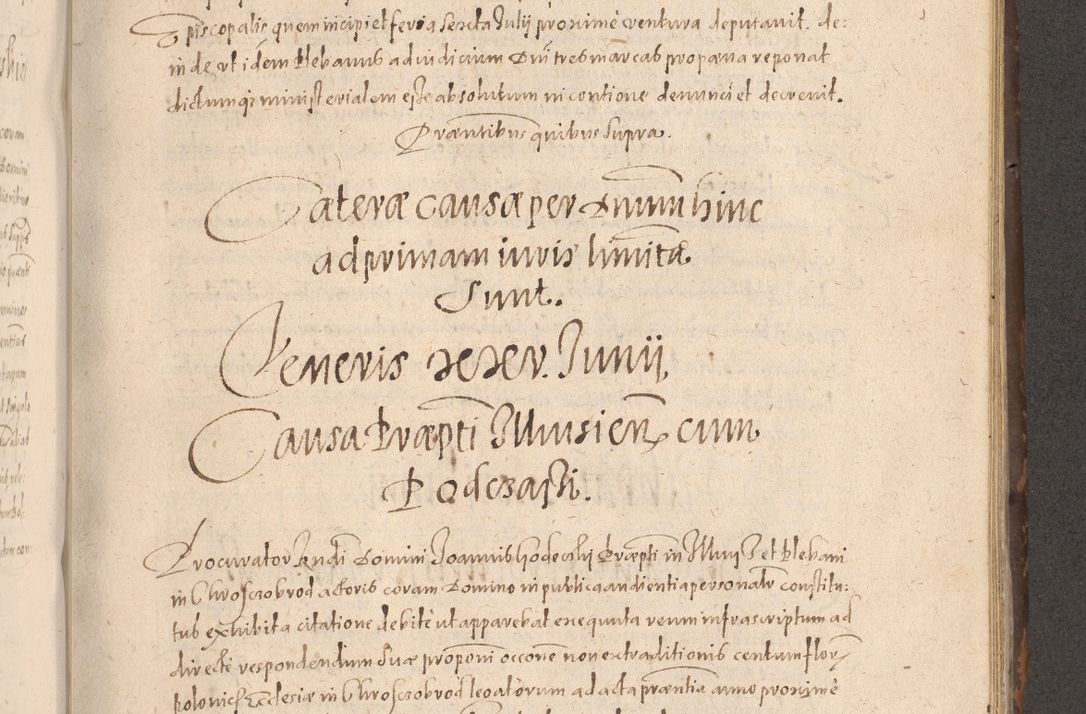 Episcopalis quem incipiet feria Sexta Julij proximè ventura deputavit. de:
inde vt idem Plebanus ad iudicium tres marcas pro pæna reponat
dictumqз ministerialem esse absolutum in contione denunciet decrevit.
Præntibus quibus supra.
Cæteræ causæ per Dnum hinc
ad primam iuris limitæ
Sunt.
Veneris xxv. Junij.
Causa Præpti Illkusien cum
Podczasÿi.
Procurator Rndi Domini Joannis Præpti in et Plebani
in Chrosczobrod actoris coram Domino in publica audientia personalr constitu:
tus exhibita citatione debitè ut apparebat exequuta reum infrascriptum ad
directe respondendum Suæ proponi occone non extraditionis centum flor
polonic Ecclesiæ in Chrosczobrod legatorum ad acta præntia anno proximè